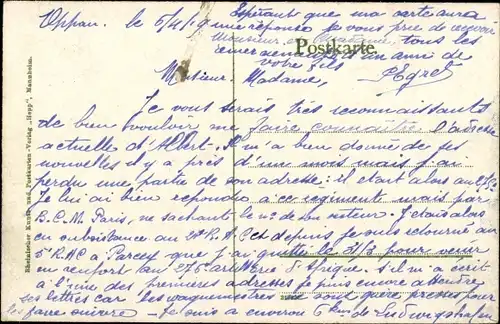 Oppau. le 6/4/19
Espérant que ma carte aura
une réponse je vous prie de recevoir
Monsieur et Madame, tous les
remerciements d'un ami de
votre fils
Postkarte.
PEgret
Monsieur. Madame,
Je vous serais très reconnaissants
de bien vouloir me faire connaître l'adresse
actuelle d'Albert. Il m'a bien donné de ses
nouvelles il y a près d'un mois mais j'ai
perdu une partie de son adresse: il était alors au
Je lui ai bien répondu à ce régiment mais par
B.C.M. Paris, ne sachant le n° de son secteur. J'étais alors
en subsistance au et depuis je suis retourné au
5e R.A.C à Parcey que j'ai quitté le 31/3 pour venir
en renfort au 276e artillerie d'Afrique. S'il m'a écrit
à l'une des premières adresses je puis encore attendre
ses lettres car les vaguemestres ne sont guère pressés pour
les faire suivre. Je suis à environ 6 kms de Ludwigshafen
Rheinischer Kunst- und Postkarten-Verlag „Hepp", Mannheim.